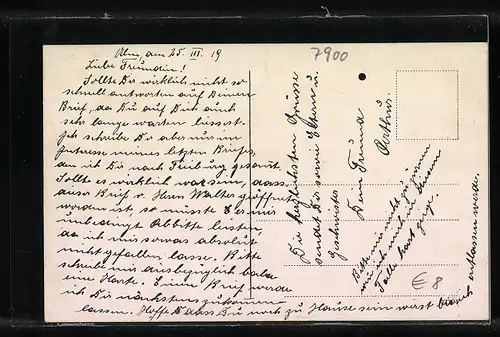 Ulm, am 25. III. 19
Liebe Freundin!
Sollte Dir wirklich nicht so
schnell antworten auf Deinen
Brief, da Du auf Dich auch
sehr lange warten liessest.
Ich schreibe Dir aber nur im
Interesse meines letzten Briefes,
den ich Dir nach Freiburg gesandt.
Sollte es wirklich wahr sein, dass
dieser Brief v. Herrn Walter geöffnet
worden ist, so müsste Er mir
unbedingt Abbitte leisten,
da ich mir sowas absolut
nicht gefallen lasse. Bitte
schreibe mir diesbezüglich bald
eine Karte. Einen Brief werde
ich Dir nächstens zukommen
lassen. Hoffe dass Du noch zu Hause sein wirst
entlassen werde.
Die herzlichsten Grüsse
sendet Dir sowie Eltern u.
Geschwister
Dein Freund
Arthur.
Bitte mir nicht zu
wenn ich mich in diesem
Falle hart zeige.
7900
€ 8